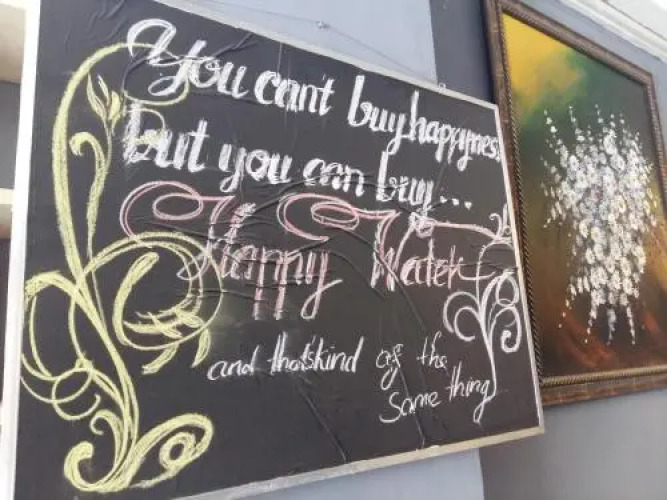 You can't buy happynes.
but you can buy...
Happy Water
and that's kind of the
same thing